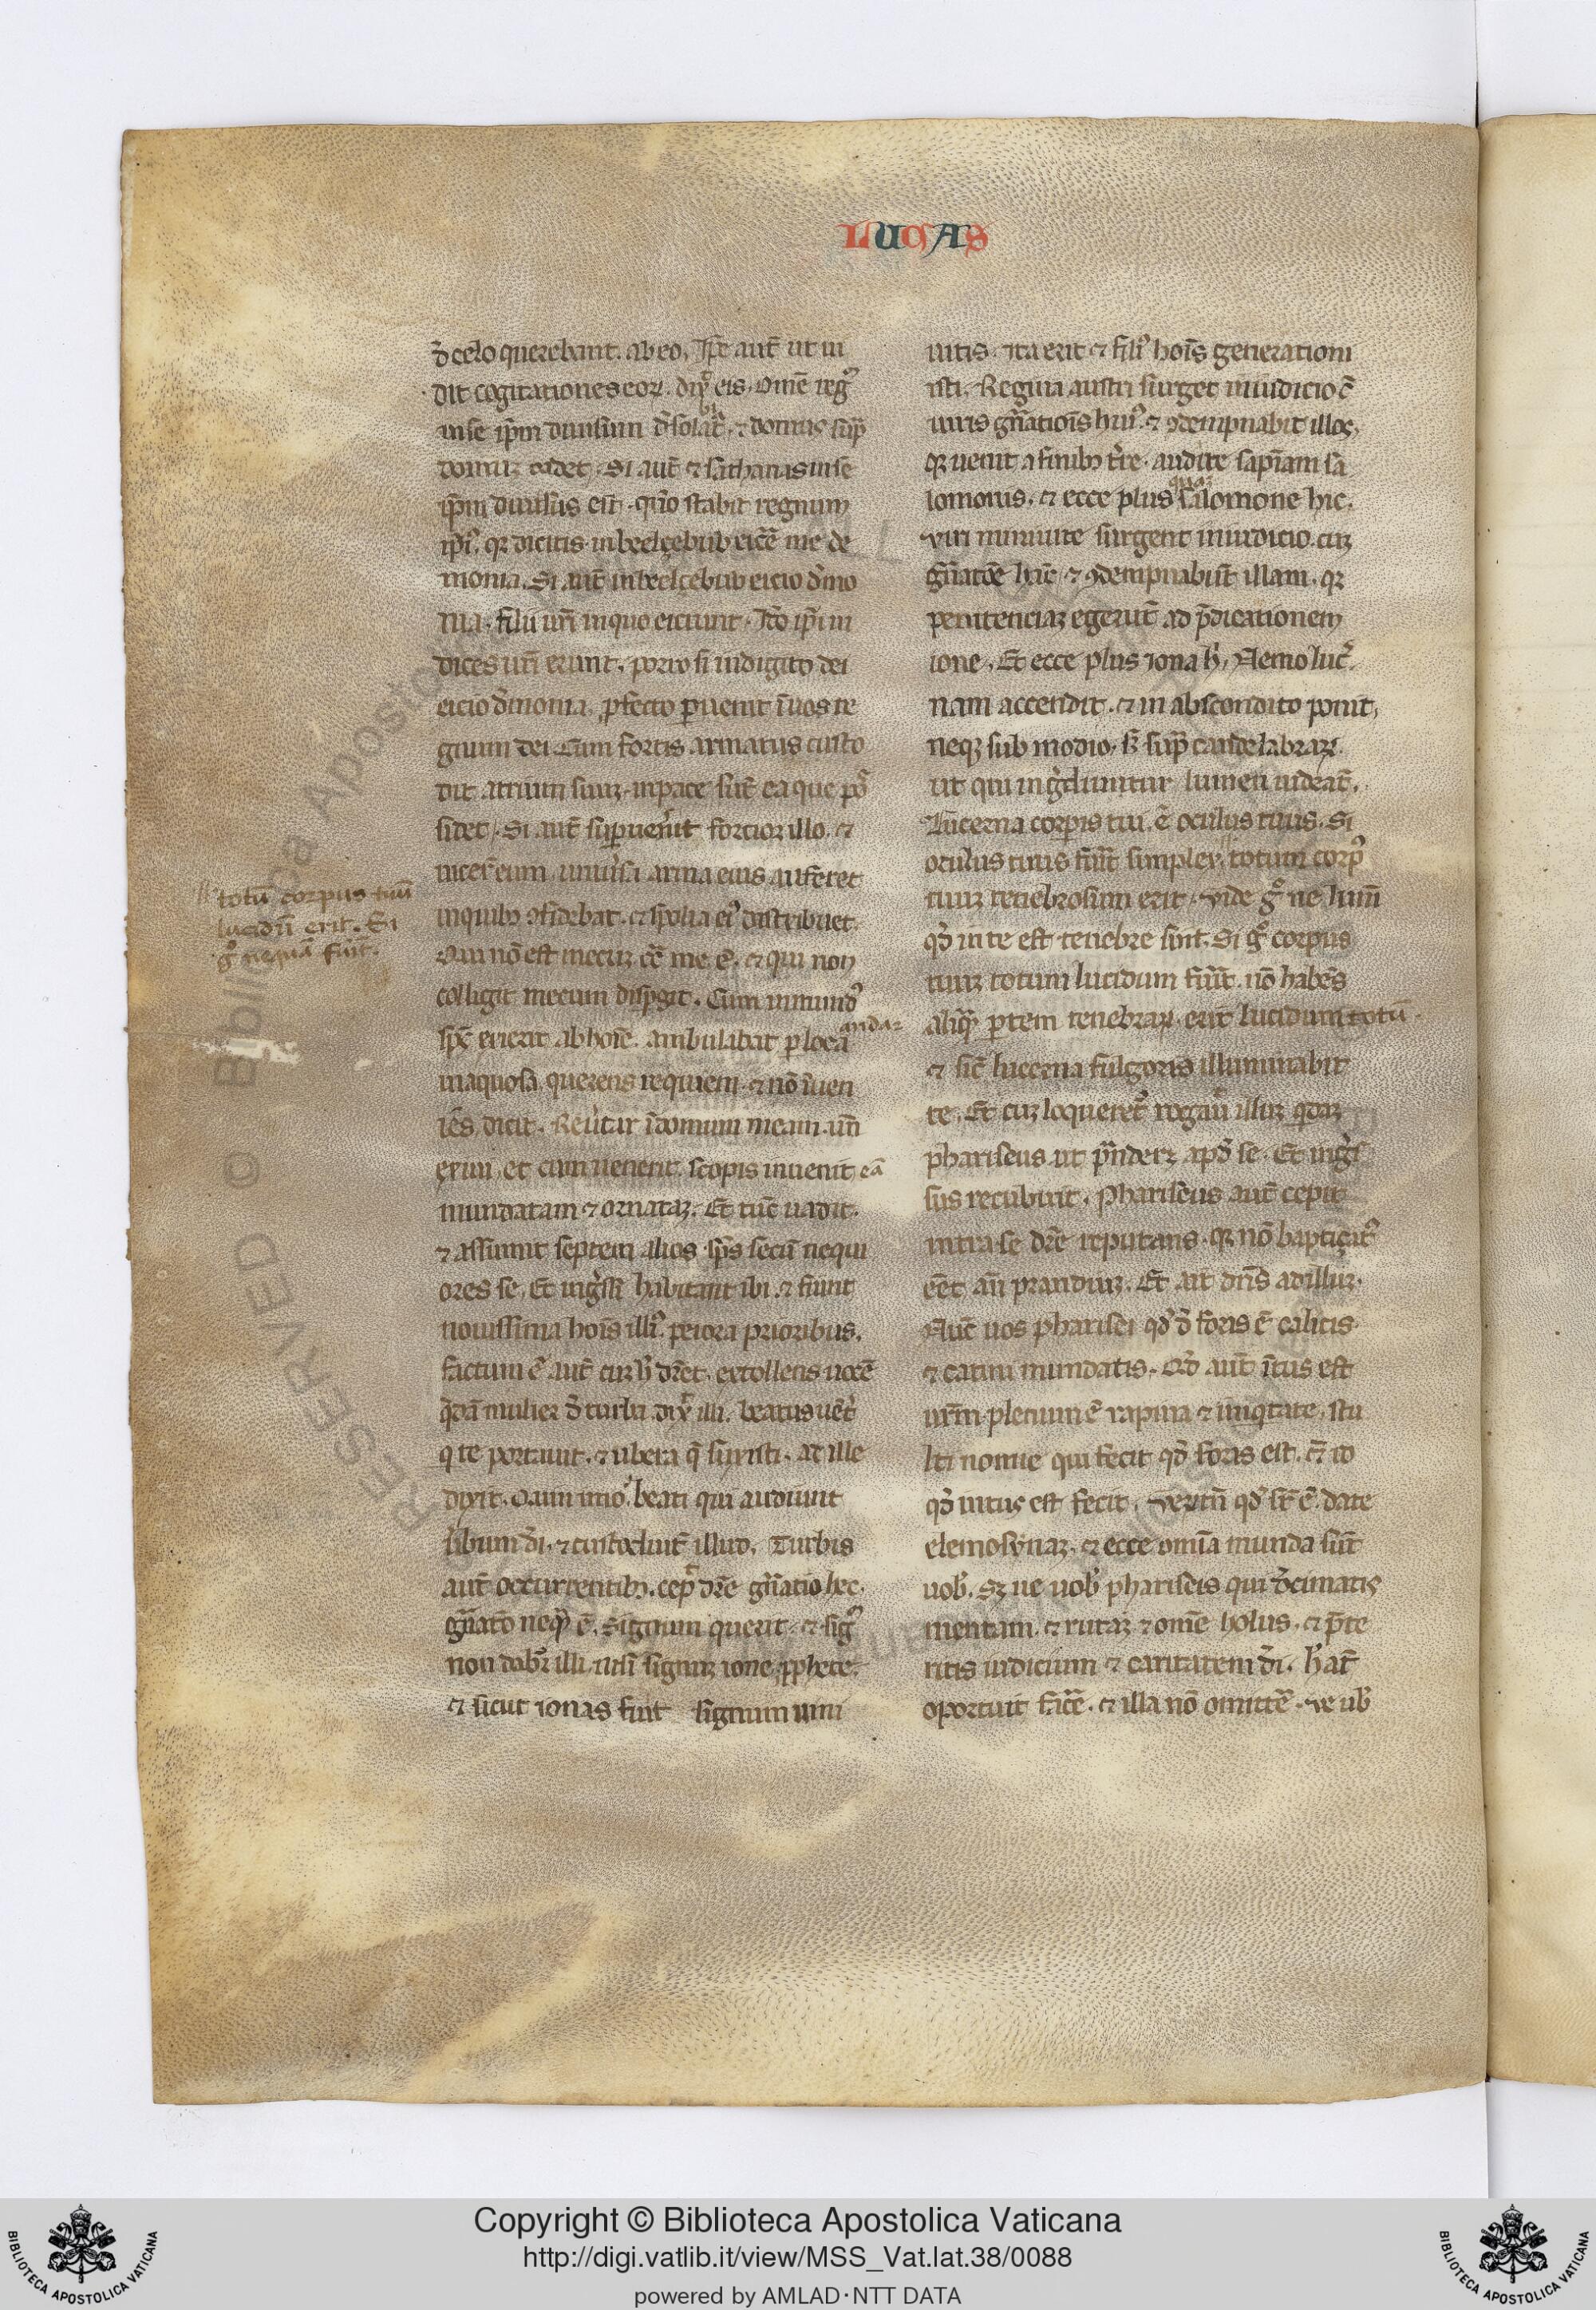 LUCAS
d̄ celo querebant. ab eo. Ip̄e aut̄ ut ui
dit cogitationes eoꝝ. dix̊ eis. Om̄e regꝰ
in se ip̄m diuisum d̄solabit̄. ⁊ domus sup̄
domuꝫ cadet. Si aut̄ ⁊ sathanas in se
ip̄m diuisus est. quō stabit regnum
ipiꝰ. qꝛ dicitis in beelçebub eicē me de
monia. Si aut̄ in beelcebub eicio d̄mo
nia. filii ur̄i in quo eiciunt. Iō ip̄i iu
dices ur̄i erunt. porro si in digito dei
eicio d̄monia. ꝓfecto ꝑuenit ī uos re
gnum dei. Cum fortis armatus custo
dit atrium suuꝫ. in pace sūt ea que pos̄
sidet. Si aut̄ suꝑuen̄it fortior illo. ⁊
uicer̄ eum. uniūsa arma eius auferet
in quibꝫ ꝯfidebat. ⁊ spolia eiꝰ distribuet.
Qui nō est mecuꝫ. cō me ē. ⁊ qui non
colligit mecum disꝑgit. Cum inmundꝰ
sp̄c exierit ab hoīe. ambulabat ꝑ loca arida ⁊
inaquosa querens requiem. ⁊ nō īuen
iēs. dicit. Reūtar ī domum meam. un̄
exiui. et cum uenerit. scopis inuenit eā
mundatam ⁊ ornataꝫ. Et tūc uadit.
⁊ assumit septem alios sp̄s secū nequi
ores se. Et ingr̄si habitant ibi. ⁊ fiunt
nouissima hoīs illiꝰ. peiora prioribus.
factum ē aut̄ cuꝫ h̄ dr̄et. extollens uocē
q̄dā mulier d̄ turba. dix̄ illi. beatus uēt̄
q te portauit. ⁊ ubera q̄ suxisti. at ille
dixit. Quin imōꝰ. beati qui audiunt
ūbum di. ⁊ custodiūt illud. Turbis
aut̄ occurrentibꝫ. cep̄ dr̄e gn̄atio hec.
gn̄atō neq̄ ē. Signum querit. ⁊ sigꝰ
non dabr̄ illi. nisi signuꝫ ione ꝓphete.
⁊ sicut ionas fuit signum nini
totū corpus tuū
lucidū erit. Si
gͦ nequā fuīt.
uitis. ita erit ⁊ filiꝰ hoīs generationi
isti. Regina austri surget in iudicio c̄
uiris gn̄atiōis huiꝰ. ⁊ ꝯdempnabit illos.
qꝛ uenit a finibꝫ t̄re. audire sapīam sa
lomonis. ⁊ ecce plus quaꝫ salomone hic.
viri niniuite surgent in iudicio. cuꝫ
gn̄atōe hac̄. ⁊ ꝯdempnabūt illam. qꝛ
penitenciaꝫ egerūt ad p̄dicationem
ione. Et ecce plus iona h̄. Nemo luc̄.
nam accendit. ⁊ in abscondito ponit.
neqꝫ sub modio. s̄ sup̄ candelabrum.
ut qui ingr̄diuntur lumen uideāt.
Lucerna corꝑis tui. ē oculus tuus. Si
oculus tuus fuīt simplex. totum corpꝰ
tuuꝫ tenebrosum erit. vide gͦ ne lumē
qd̄ in te est tenebre sint. Si gͦ corpus
tuuꝫ totum lucidum fuīt. nō habēs
aliq̄ꝫ ꝑtem tenebraꝝ. erit lucidum totū.
⁊ sic̄ lucerna fulgoris illuminabit
te. Et cuꝫ loqueret̄. rogauͥ illuꝫ qdaꝫ
phariseus ut p̄nderꝫ apd̄ se. Et ingr̄s
sus recubuit. Phariseus aut̄ cepit
intra se dr̄e reputans. qꝛ nō baptiçatꝰ
eēt an̄ prandiuꝫ. Et ait dn̄s ad illuꝫ.
Nūc uos pharisei qd̄ d̄ foris ē calicis
⁊ catini mundatis. Qd̄ aut̄ ītus est
ur̄m. plenum ē rapina ⁊ iniqtate. stu
lti nonne qui fecit qd̄ foris est. & io
qd̄ intus est fecit. verūtn̄ qd̄ sr̄ ē. date
elemosynaꝫ. ⁊ ecce om̄ia munda sūt
uob̄. Sꝫ ue uob̄ phariseis qui d̄cimatis
mentam. ⁊ rutaꝫ ⁊ om̄e holus. ⁊ p̄te
ritis iudicium ⁊ caritatem di. h̄ aut̄
oportuit fac̄e. ⁊ illa nō omitt̄e. ve ub̄
Copyright © Biblioteca Apostolica Vaticana
http://digi.vatlib.it/view/MSS_Vat.lat.38/0088
powered by AMLAD·NTT DATA
BIBLIOTECA APOSTOLICA VATICANA
BIBLIOTECA APOSTOLICA VATICANA